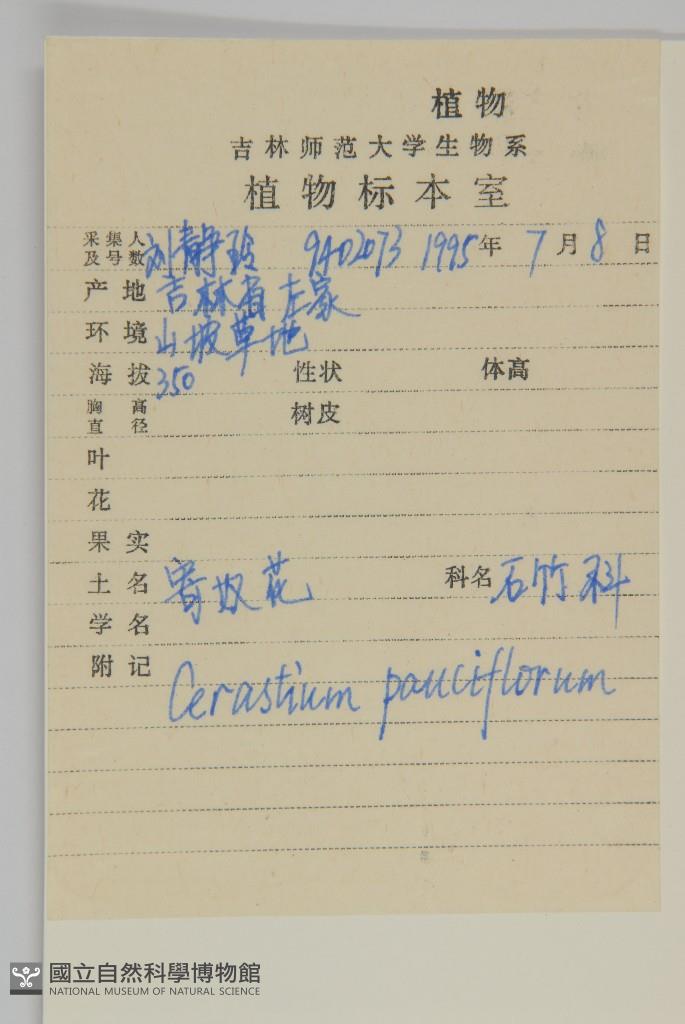 植物
吉林师范大学生物系
植物标本室
采集人及号数 刘静玲 9402073 1995年7月8日
产地 吉林省左家
环境 山坡草地
海拔 350 性状 体高
胸高直径 树皮
叶
花
果实
土名 花 科名 石竹科
学名
附记 Cerastium pauciflorum
國立自然科學博物館
NATIONAL MUSEUM OF NATURAL SCIENCE